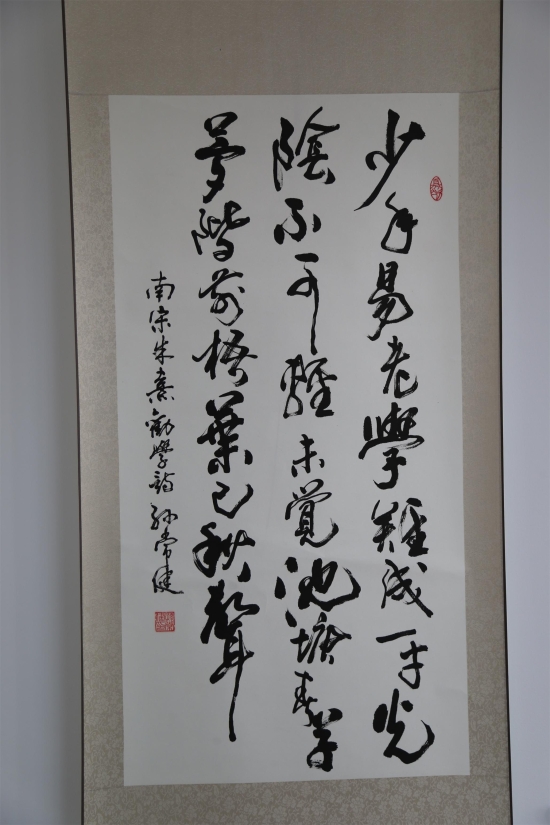 少年易老學難成一寸光
陰不可輕未覺池塘春草
夢階前梧葉已秋聲
南宋朱熹勸學詩 孫常健